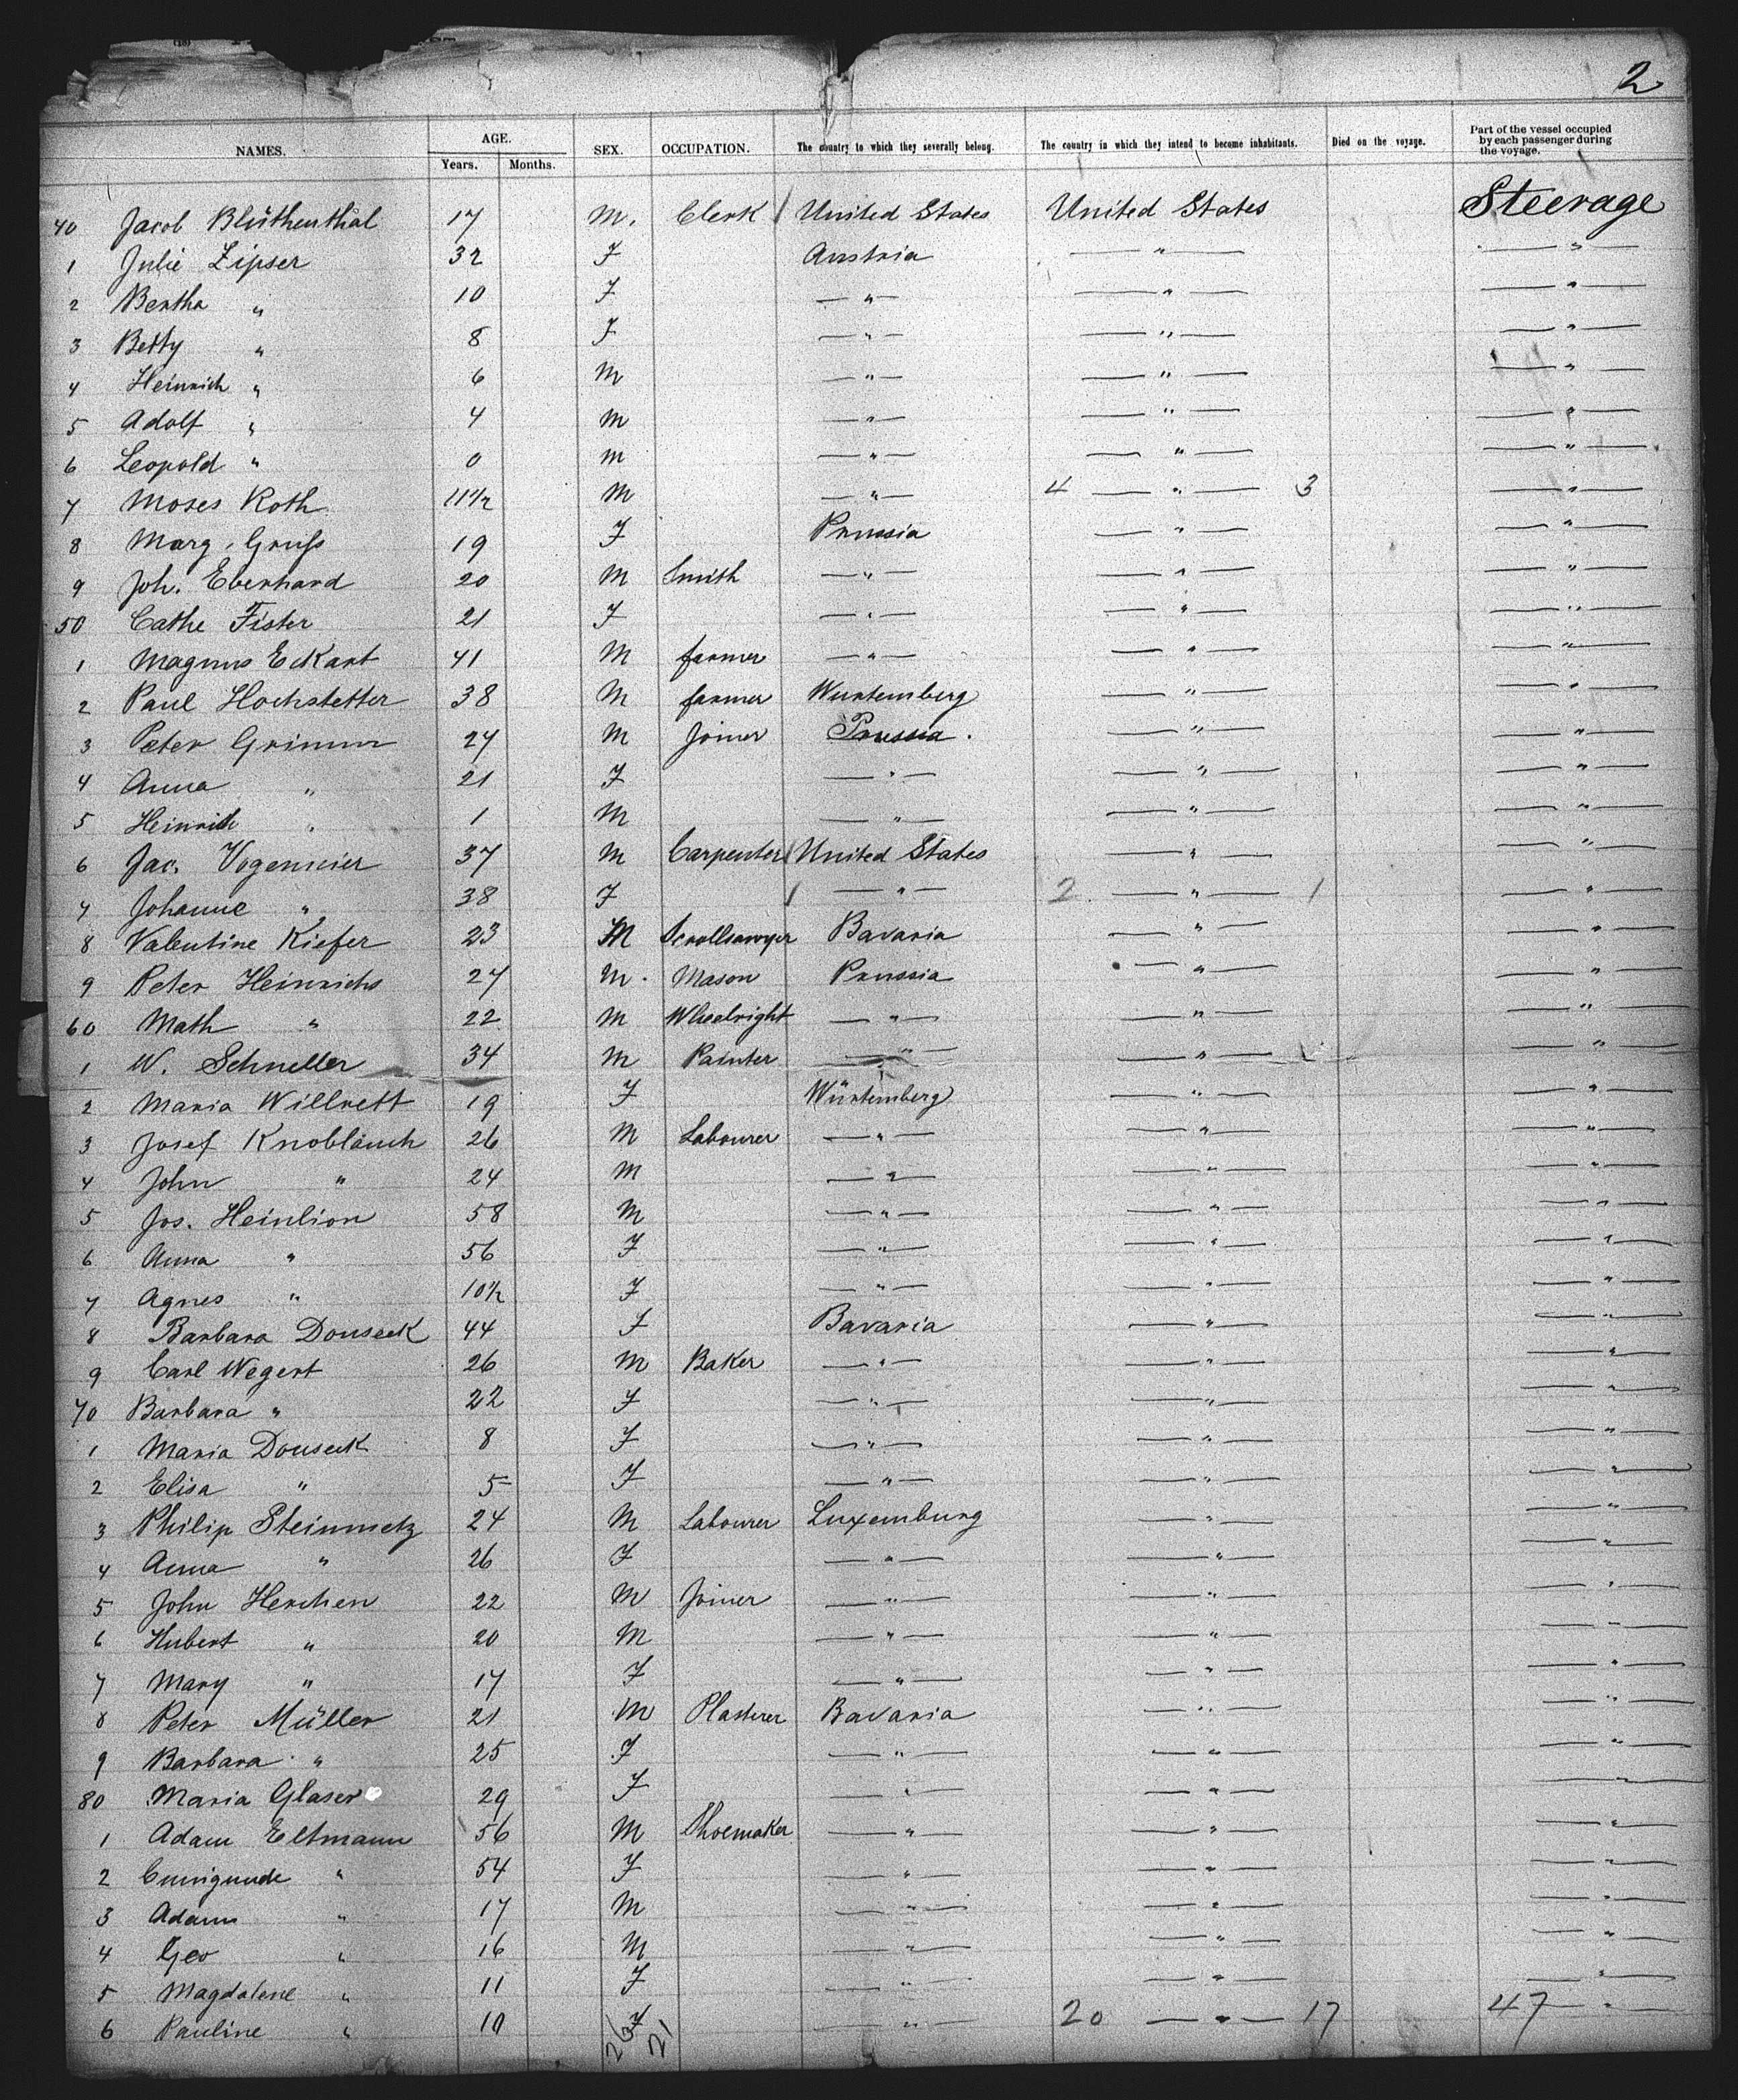 2
NAMES. AGE. Years. Months. SEX. OCCUPATION. The country to which they severally belong. The country in which they intend to become inhabitants. Died on the voyage. Part of the vessel occupied by each passenger during the voyage.
40 Jacob Blüthenthal 17 M. Clerk United States United States Steerage
1 Julie Zipser 32 F Austria — " — — " —
2 Bertha " 10 F — " — — " — — " —
3 Betty " 8 F — " — — " — — " —
4 Heinrich " 6 M — " — — " — — " —
5 Adolf " 4 M — " — — " — — " —
6 Leopold " 0 M — " — — " — — " —
7 Moses Roth 11 1/2 M — " — 4 — " — 3 — " —
8 Marg. Gruß 19 F Prussia — " — — " —
9 Joh. Eberhard 20 M Smith — " — — " — — " —
50 Cathe Fister 21 F — " — — " — — " —
1 Magnus Eckart 41 M farmer — " — — " — — " —
2 Paul Hochstetter 38 M farmer Wurtemberg — " — — " —
3 Peter Grimm 27 M Joiner Prussia. — " — — " —
4 Anna " 21 F — " — — " — — " —
5 Heinrich " 1 M — " — — " — — " —
6 Jac. Vogemeier 37 M Carpenter United States — " — — " —
7 Johanne " 38 F — " — 2 — " — 1 — " —
8 Valentine Kiefer 23 M Scrollsawyer Bavaria — " — — " —
9 Peter Heinrichs 27 M. Mason Prussia — " — — " —
60 Math " 22 M Wheelright — " — — " — — " —
1 W. Schneller 34 M Painter — " — — " — — " —
2 Maria Willrett 19 F Würtemberg — " — — " —
3 Josef Knoblauch 26 M Labourer — " — — " — — " —
4 John " 24 M — " — — " — — " —
5 Jos. Heinlion 58 M — " — — " — — " —
6 Anna " 56 F — " — — " — — " —
7 Agnes " 10 1/2 F — " — — " — — " —
8 Barbara Douseck 44 F Bavaria — " — — " —
9 Carl Wegert 26 M Baker — " — — " — — " —
70 Barbara " 22 F — " — — " — — " —
1 Maria Douseck 8 F — " — — " — — " —
2 Elisa " 5 F — " — — " — — " —
3 Philip Steinmetz 24 M Labourer Luxemburg — " — — " —
4 Anna " 26 F — " — — " — — " —
5 John Herchen 22 M Joiner — " — — " — — " —
6 Hubert " 20 M — " — — " — — " —
7 Mary " 17 F — " — — " — — " —
8 Peter Müller 21 M Plasterer Bavaria — " — — " —
9 Barbara " 25 F — " — — " — — " —
80 Maria Glaser 29 F — " — — " — — " —
1 Adam Eltmann 56 M Shoemaker — " — — " — — " —
2 Cunigunde " 54 F — " — — " — — " —
3 Adam " 17 M — " — — " — — " —
4 Geo " 16 M — " — — " — — " —
5 Magdalene " 11 F — " — — " — — " —
6 Pauline " 10 F — " — 20 — " — 17 47 — " —
26 21